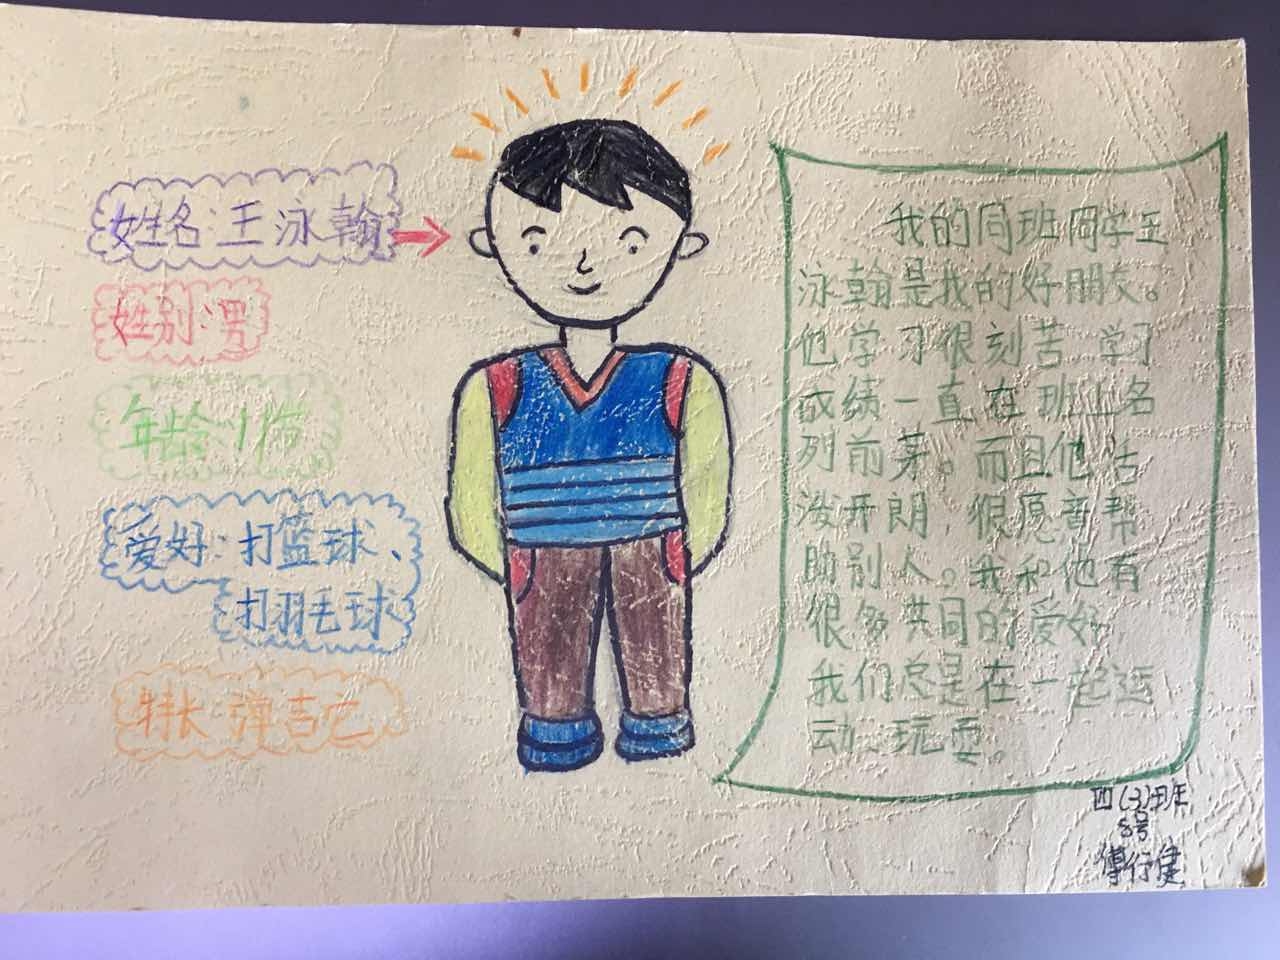 姓名:王泳翰
姓别:男
年龄:1
爱好:打篮球、
打羽毛球
特长 弹吉它
我的同班同学王
泳翰是我的好朋友。
他学习很刻苦 学习
成绩一直在班上名
列前茅。而且他活
泼开朗 很愿意帮
助别人。我和他有
很多共同的爱好
我们总是在一起运
动、玩耍。
四(3)班
8号
傅行健